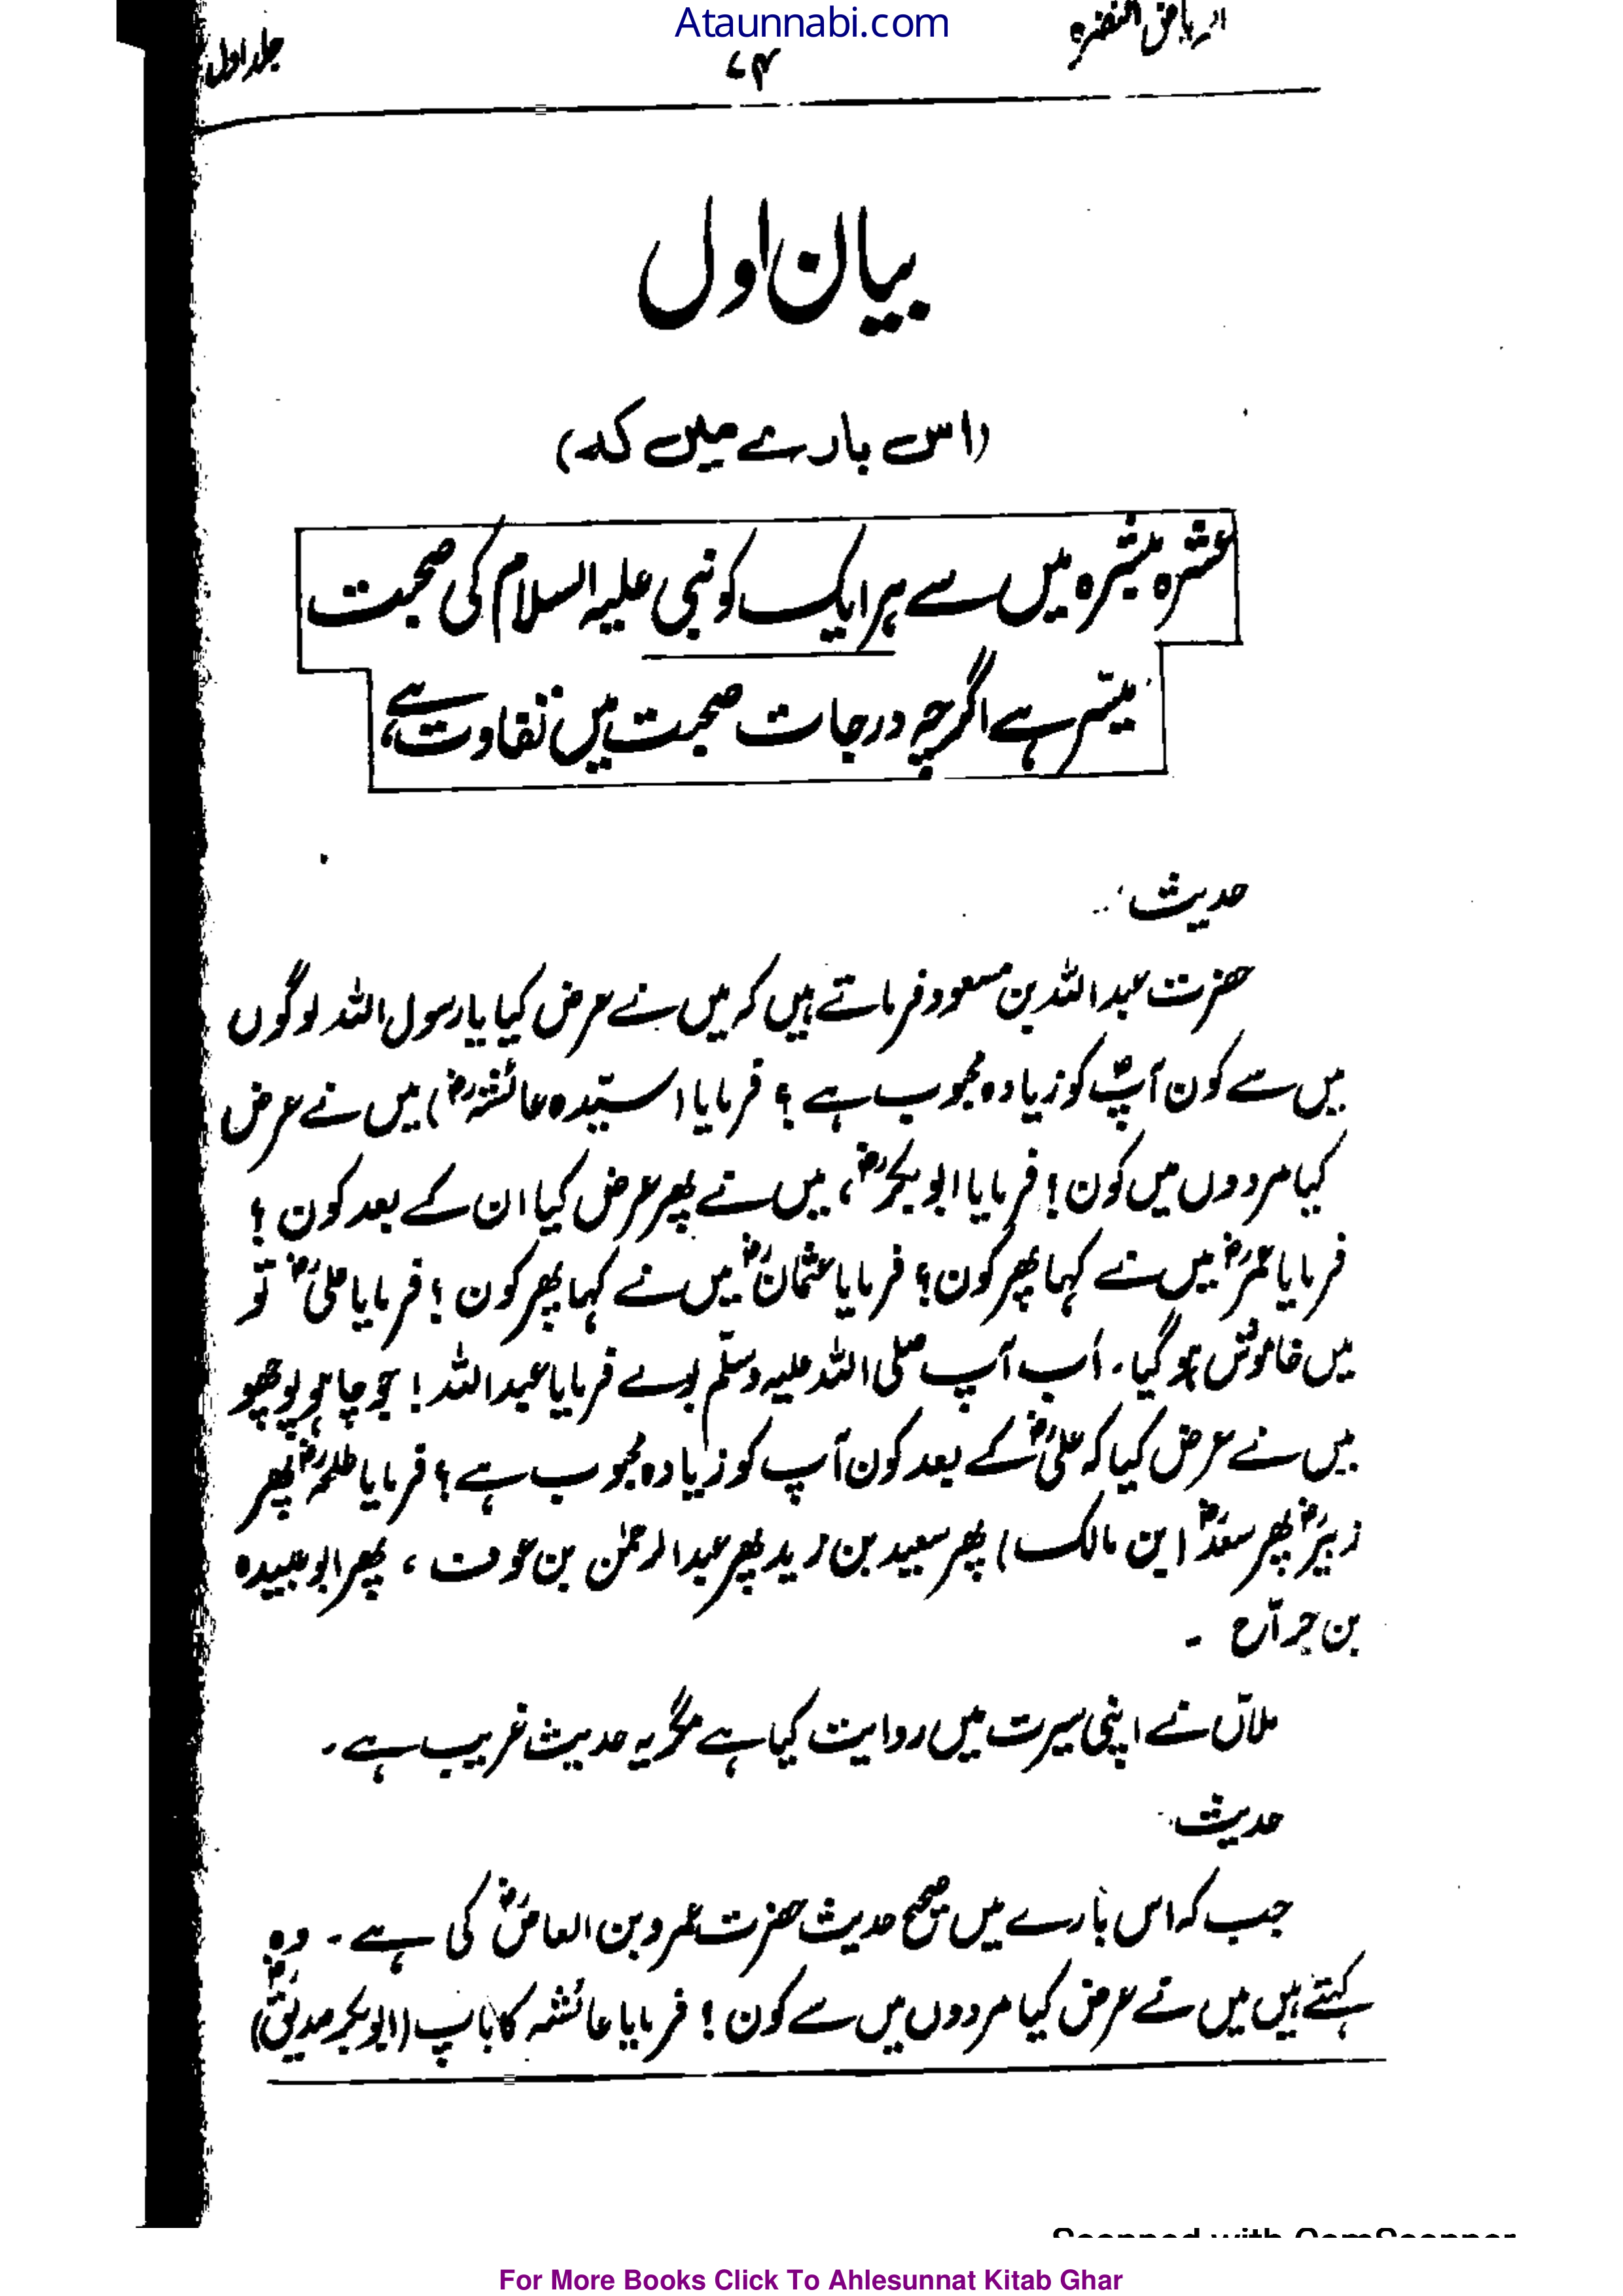 Ataunnabi.com
الریاض النضرہ
۷۴
جلد اول
بیان اول
(اس بارے میں کہ)
عشرہ مبشرہ میں سے ہر ایک کو نبی علیہ السلام کی صحبت
میسّر ہے اگرچہ درجات صحبت میں تفاوت ہے
حدیث:
حضرت عبداللہ بن مسعود فرماتے ہیں کہ میں نے عرض کیا یا رسول اللہ لوگوں
میں سے کون آپؐ کو زیادہ محبوب ہے؟ فرمایا (سیّدہ عائشہؓ) میں نے عرض
کیا مردوں میں کون؟ فرمایا ابوبکرؓ، میں نے پھر عرض کیا ان کے بعد کون؟
فرمایا عمرؓ میں نے کہا پھر کون؟ فرمایا عثمانؓ میں نے کہا پھر کون؟ فرمایا علیؓ تو
میں خاموش ہو گیا۔ اب آپ صلی اللہ علیہ وسلّم بولے فرمایا عبداللہ! جو چاہو پوچھو
میں نے عرض کیا کہ علیؓ کے بعد کون آپ کو زیادہ محبوب ہے؟ فرمایا طلحہؓ پھر
زبیرؓ پھر سعدؓ (ابن مالک) پھر سعید بن زید پھر عبدالرحمٰن بن عوف، پھر ابوعبیدہ
بن جراح ۔
ملاّں نے اپنی سیرت میں روایت کیا ہے مگر یہ حدیث غریب ہے۔
حدیث
جب کہ اس بارے میں صحیح حدیث حضرت عمرو بن العاصؓ کی ہے۔ وہ
کہتے ہیں میں نے عرض کیا مردوں میں سے کون؟ فرمایا عائشہ کا باپ (ابوبکر صدیقؓ)
Scanned with CamScanner
For More Books Click To Ahlesunnat Kitab Ghar